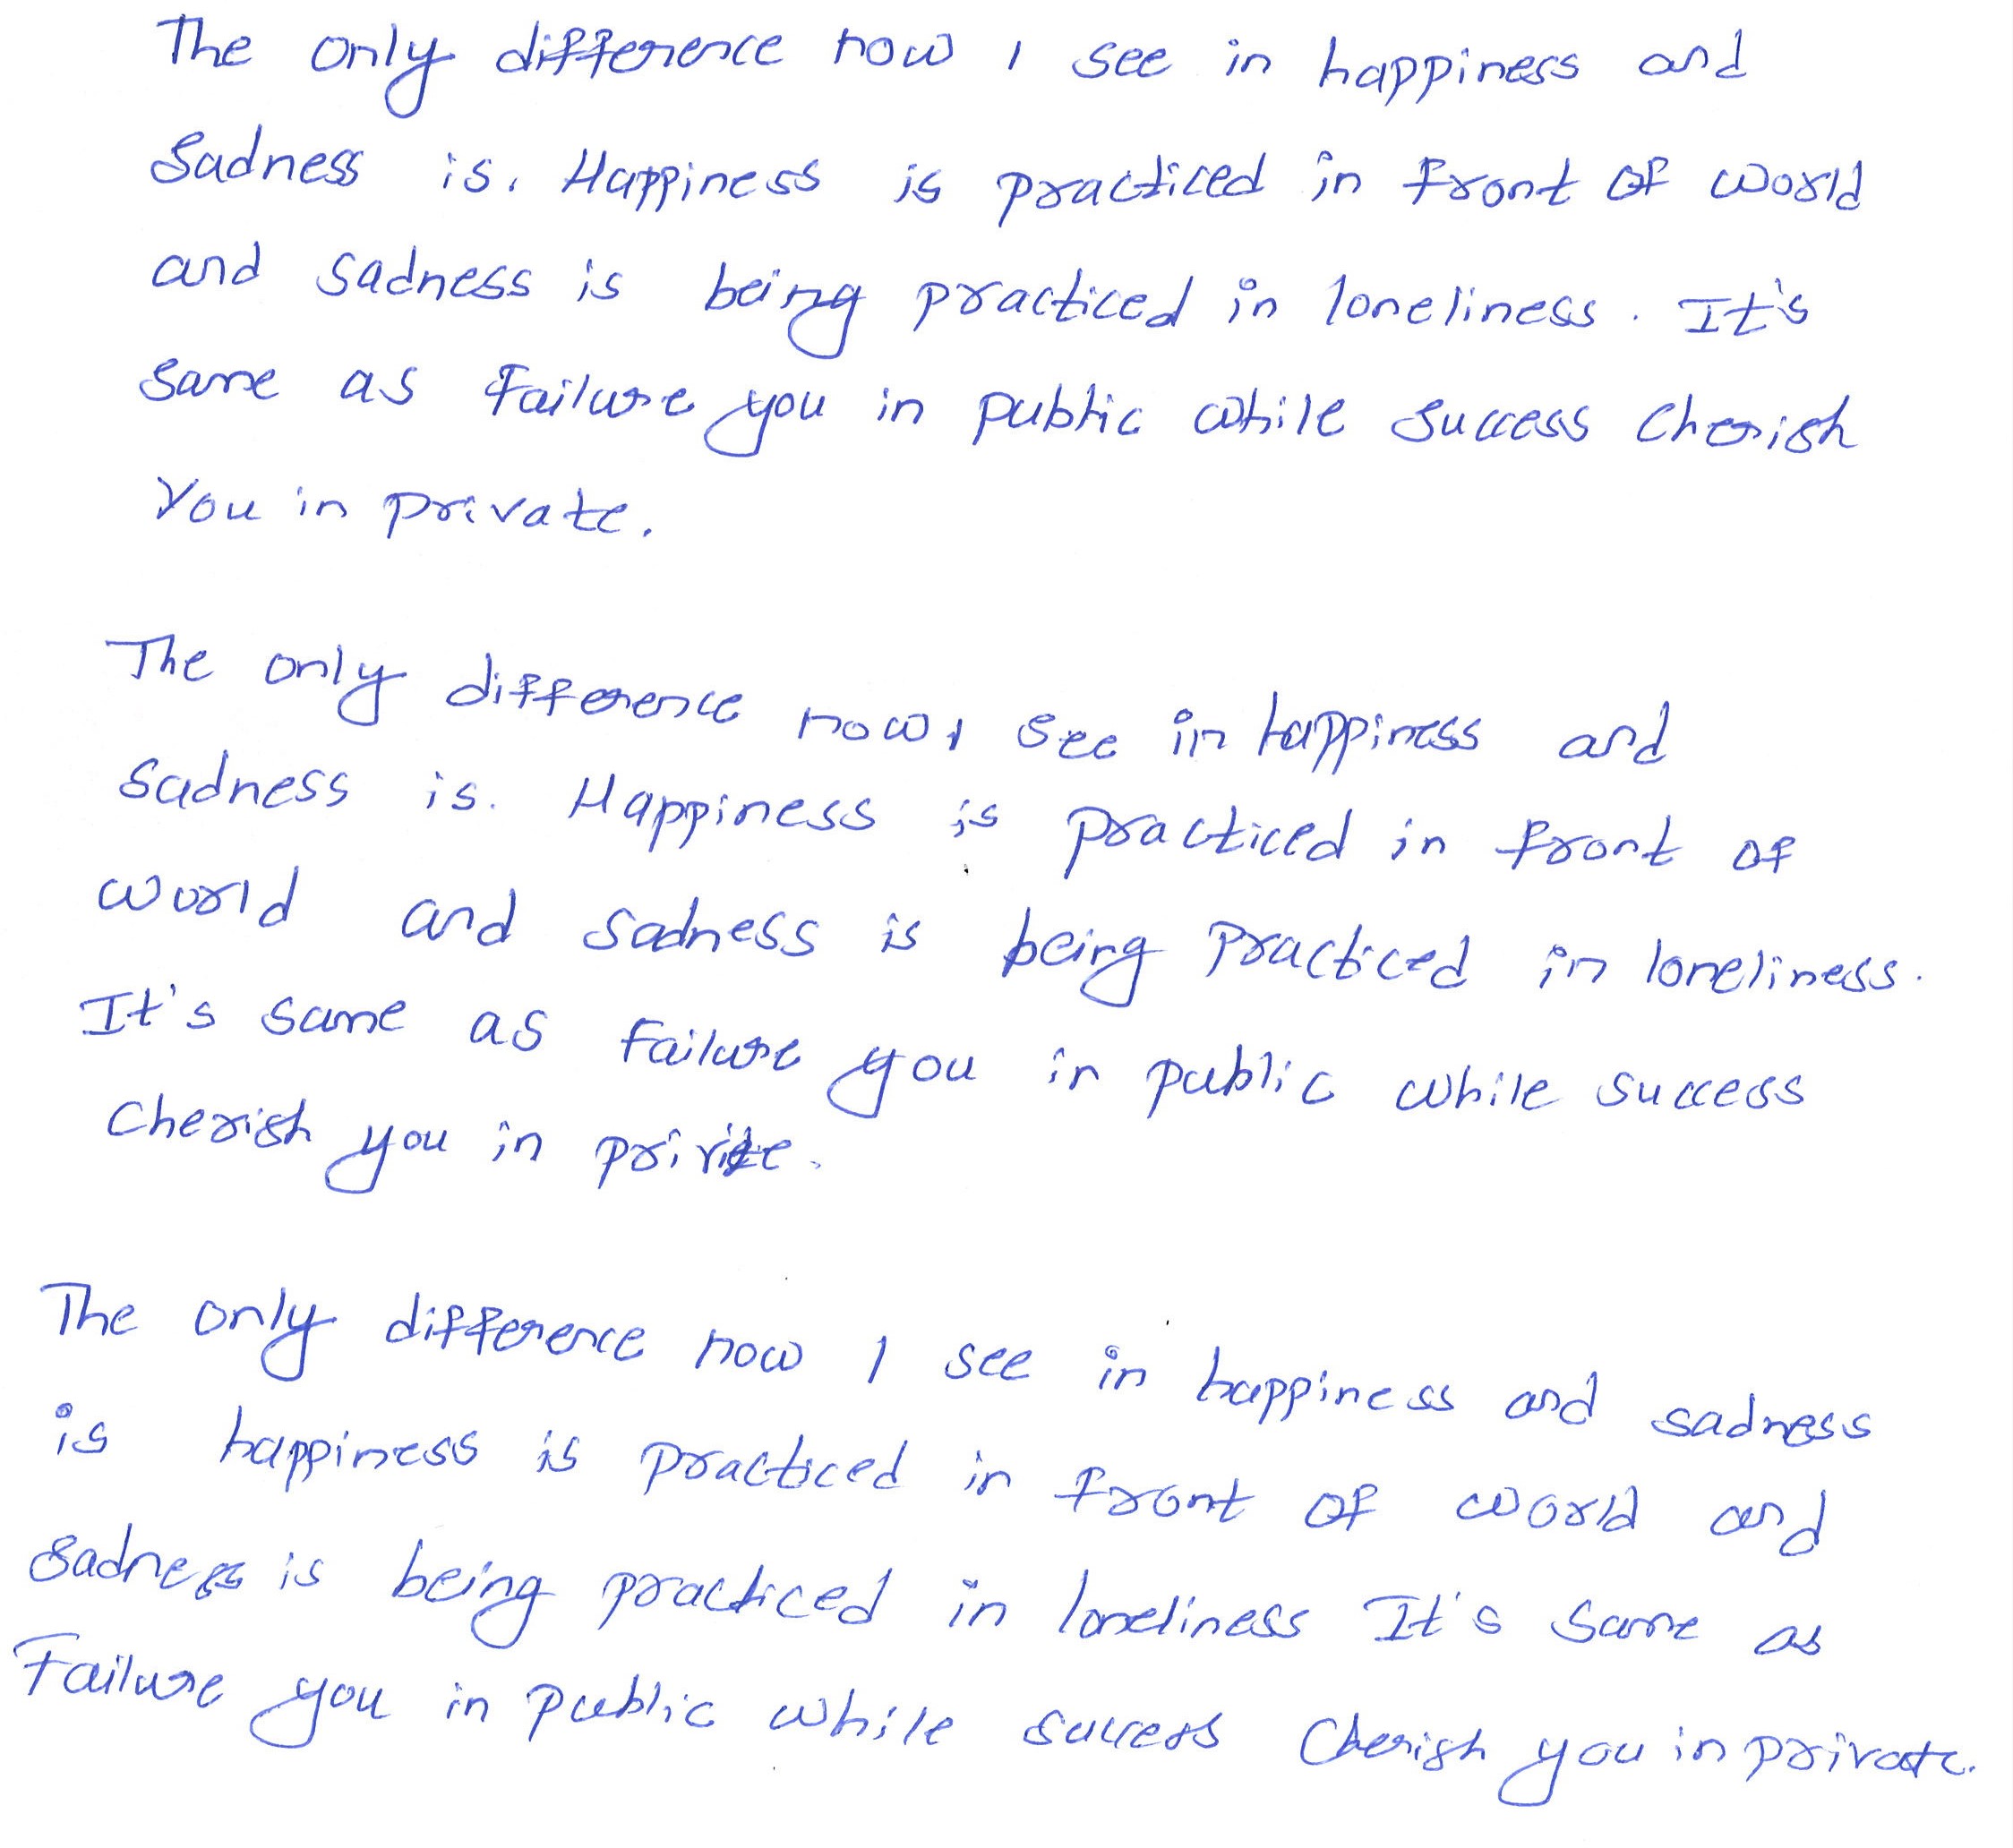 The only difference now I see in happiness and
Sadness is. Happiness is practiced in front of world
and sadness is being practiced in loneliness. It's
same as Failure you in public while success cherish
You in private.
The only difference now I see in happiness and
Sadness is. Happiness is practiced in front of
world and sadness is being practiced in loneliness.
It's same as failure you in public while success
cherish you in
The only difference now I see in happiness and sadness
is happiness is practiced in front of world and
sadness is being practiced in loneliness It's same as
Failure you in public while success cherish you in private.